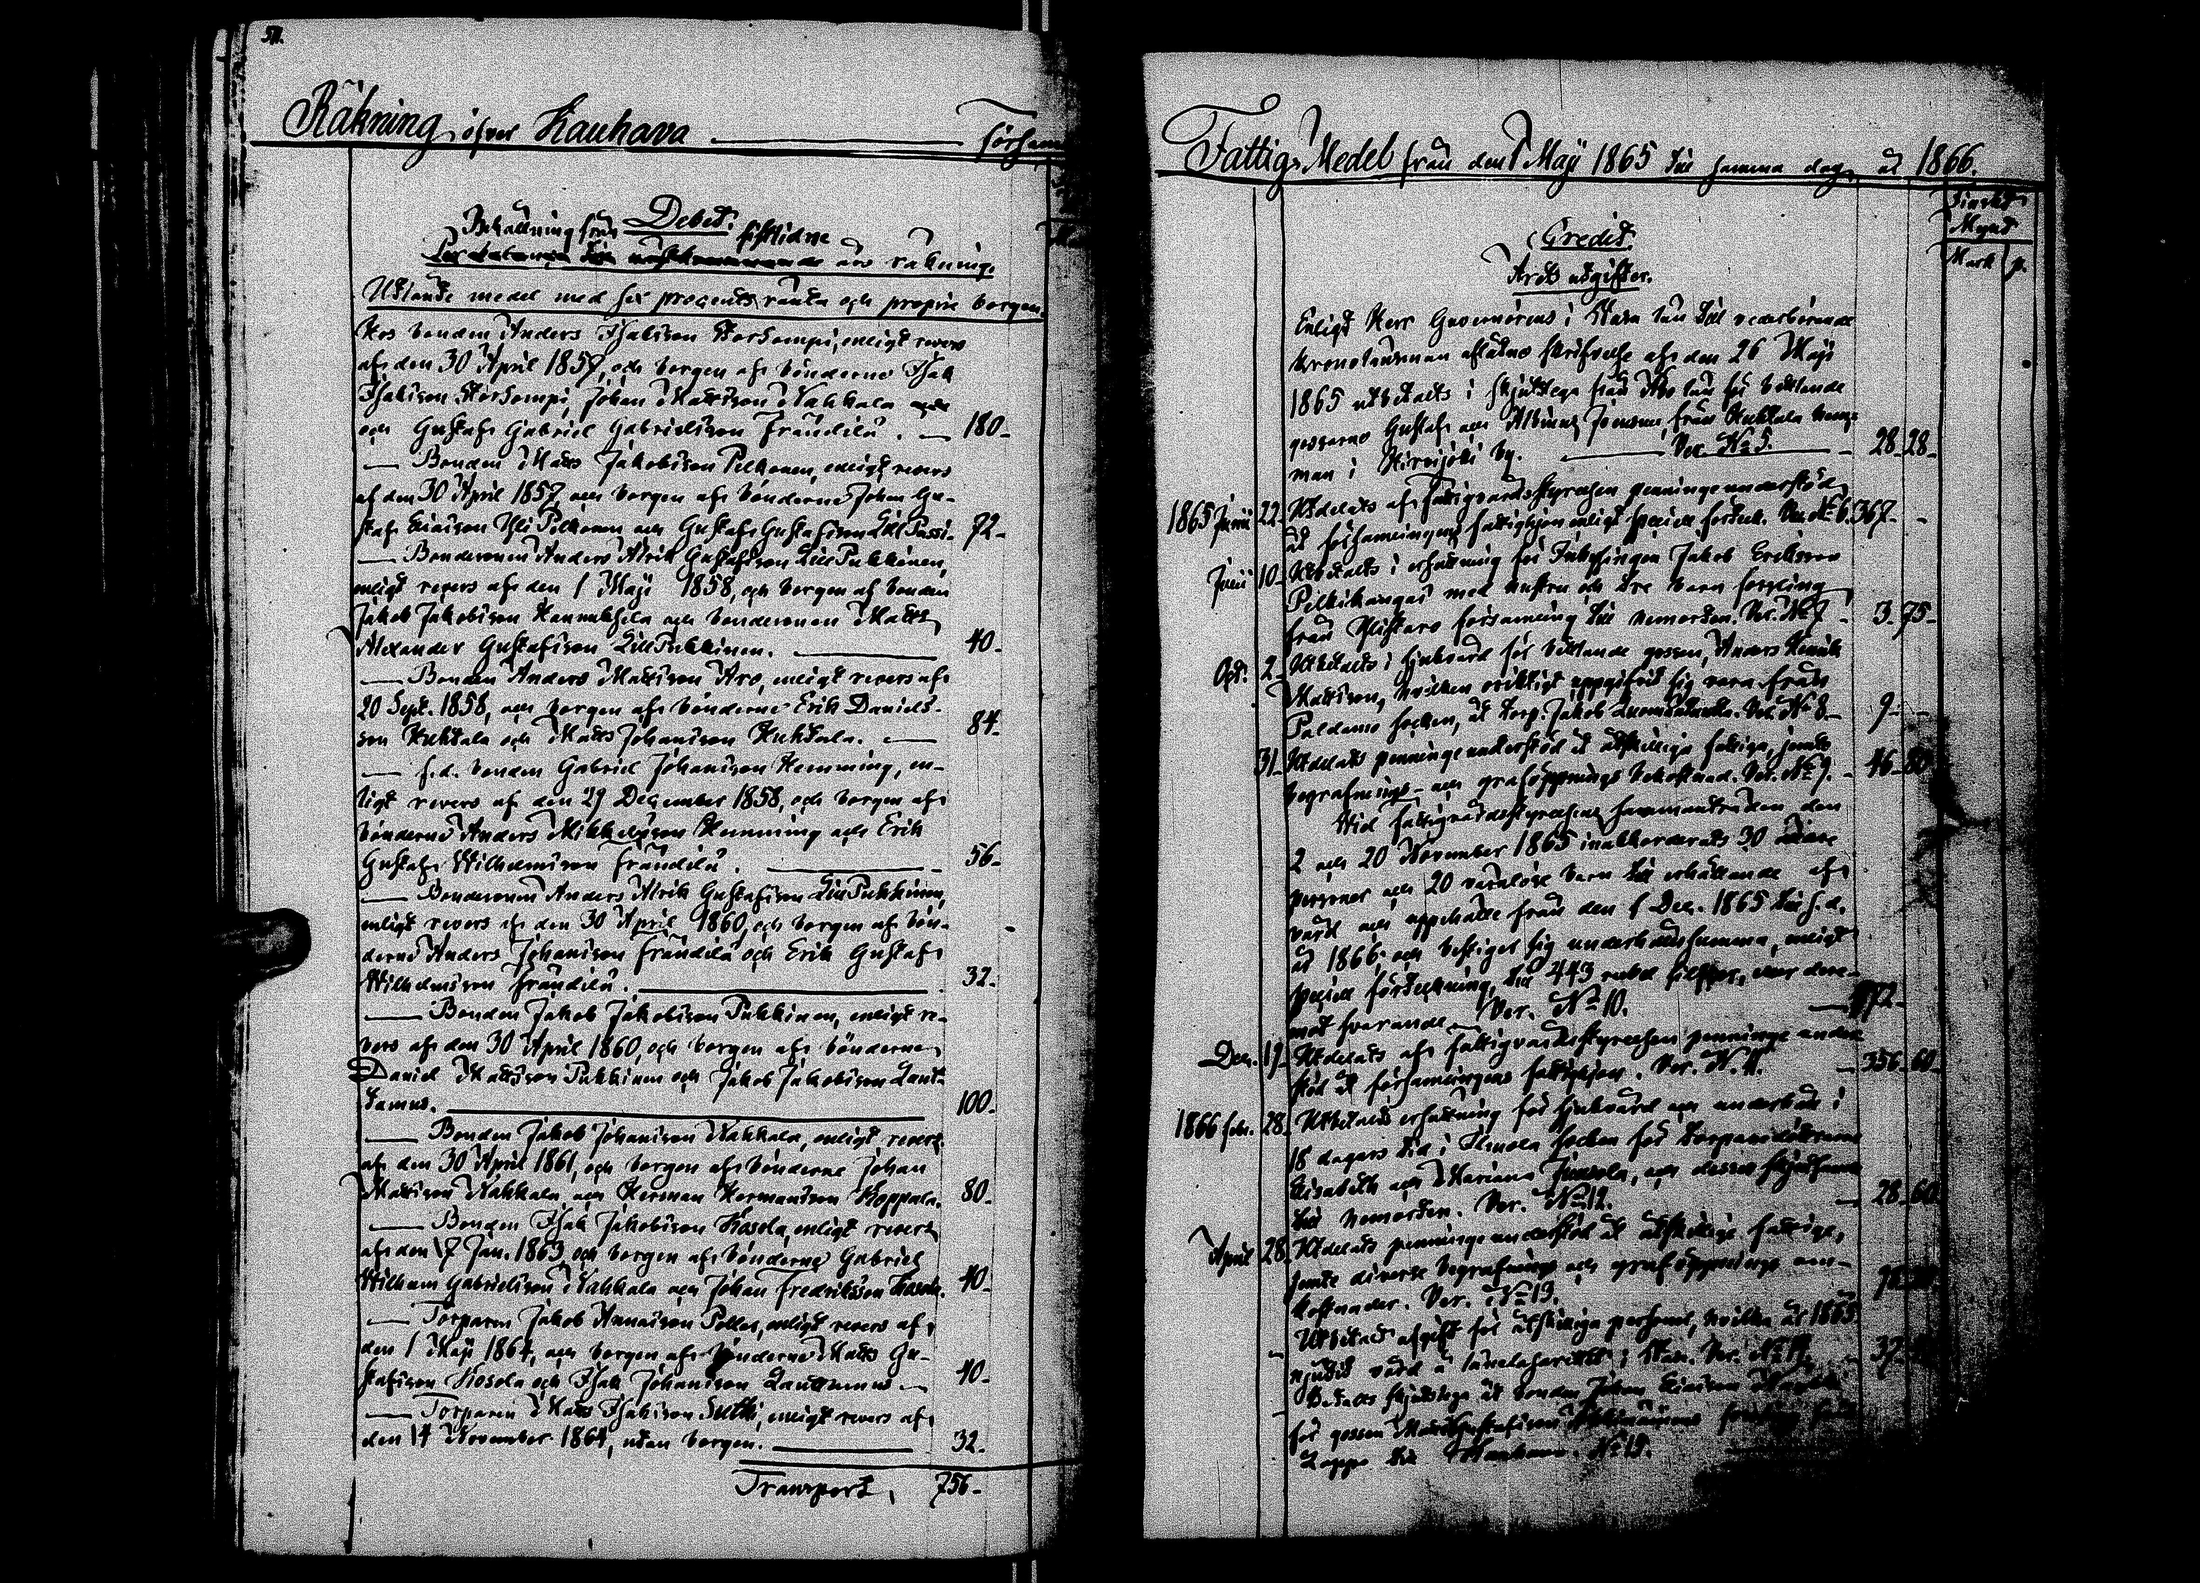 Räkning öfver Kauhava försam
Debet.
Behållning från sistlidne
års räkning.
Utlånte medel med sex procents ränta och proprie borgen.
Hos bonden Anders Isaksson Stortompi, enligt revers
af den 30 April 1857, och borgen af bönderne Isak
Isaksson Stortompi, Johan Mattsson Nahkala
och Gustaf Gabriel Gabrielsson Frändilä. — 180-
— Bonden Matts Jakobsson Pelkonen, enligt revers
af den 30 April 1857 och borgen af bönderne Johan Gu-
staf Eliasson Yli Pelkonen och Gustaf Gustafsson Lill Passi. 72-
— Bondesonen Anders Alrik Gustafsson Lill Pukkinen,
enligt revers af den 1 Maji 1858, och borgen af bonden
Jakob Jakobsson Hannuksela och bondesonen Matts
Alexander Gustafsson Lill Pukkinen. — 40-
— Bonden Anders Mattsson Aro, enligt revers af
20 Sept. 1858, och borgen af bönderne Erik Daniels-
son Huhtala och Matts Johansson Huhtala. — 84-
— f.d. bonden Gabriel Johansson Hemming, en-
ligt revers af den 29 December 1858, och borgen af
bönderne Anders Mikkelsson Hemming och Erik
Gustaf Wilhelmsson Frändilä. — 56-
— Bondesonen Anders Alrik Gustafsson Lill Pukkinen,
enligt revers af den 30 April 1860, och borgen af bön-
derne Anders Johansson Frändilä och Erik Gustaf
Wilhelmsson Frändilä. — 32-
— Bonden Jakob Jakobsson Pukkinen, enligt re-
vers af den 30 April 1860, och borgen af bönderne
Daniel Mattsson Pukkinen och Jakob Jakobsson Laut-
tamus. — 100-
— Bonden Jakob Johansson Nahkala, enligt revers
af den 30 April 1861, och borgen af bönderne Johan
Mattsson Nahkala och Herman Hermansson Hoppala. 80-
— Bonden Isak Jakobsson Kosola, enligt revers
af den 17 Jan. 1863, och borgen af bönderne Gabriel
Wilhelm Gabrielsson Nahkala och Johan Fredriksson Kosola. 40-
— Torparen Jakob Annaisson Pollar, enligt revers af
den 1 Maji 1864, och borgen af bönderne Matts Gu-
stafsson Kosola och Isak Johansson Lauttamus — 40-
— Torparen Matts Isaksson Sulki, enligt revers af
den 14 November 1864, utan borgen. — 32-
Transport, 756-
Fattigs Medel från den 1 Maji 1865 till samma dag år 1866.
Finskt
Mynt
Mark p.
Credit
Årets utgifter.
Enligt Herr Guvernörens i Wasa län till vederbörande
kronolänsman aflåtne skrifvelse af den 26 Maji
1865 utbetalts i skjutslega från Åbo län för bettlande
gossarne Gustaf och
man i Hirvijoki by. — Ver. № 5. — 28 28-
1865 Junii 22. Utdelats af fattigvårdsstyrelsen penningeunderstöd
åt församlingens fattighjon enligt speciell förteckn. Ver. № 6. 367-
Junii 10. Utbetalts i ersättning för Inhysingen Jakob Eriksson
Pelkikangas med hustru och tre barn forsling
från Ylistaro församling till hemorten. Ver. № 7 - 3 75-
Oct. 2. Utbetalts i sjukvård för bettlande gossen, Anders Henrik
Mattsson, hvilken oriktigt uppgifvit sig vara från
Paldamo socken, åt torp. Jakob Ver. № 8 - 9-
31. Utdelats penningeunderstöd åt åtskilliga fattiga, jemte
begrafnings- och graföppnings kostnad. Ver. № 9. - 46 80
Wid fattigvårdsstyrelsens sammanträden den
2 och 20 November 1865 inackorderats 30 äldre
personer och 20 värnlöse barn till erhållande af
vård och uppehälle från den 1 Dec. 1865 till s.d.
år 1866, och bestiger sig underhållssumma, enligt
speciell förteckning, till 443 rubel silfver,
mot svarande — Ver. № 10. — 1772-
Dec. 19. Utdelats af fattigvårdsstyrelsen penninge under
stöd åt församlingens fattighjon. Ver. № 11. — 356 60-
1866 febr. 28. Utbetalts ersättning för sjukvård och underhåll i
18 dagars tid i Ilmola socken för torparedöttrarne
Elisabeth och Mariana och desses skjutsande
till hemorten. Ver. № 12. — 28 60
April 28. Utdelats penningeunderstöd åt åtskillige fattige,
jemte diverse begrafnings och graföppnings om-
kostnader. Ver. № 13.
Utbetalt afgift för åtskilliga personer, hvilka år 1865
njutit vård å länelasarettet i Wasa. Ver. № 14. - 37
Betalts skjutslega åt bonden Johan Eliasson
för gossen Matts Gustafsson forsling från
Lappo till Kauhava. № 15.